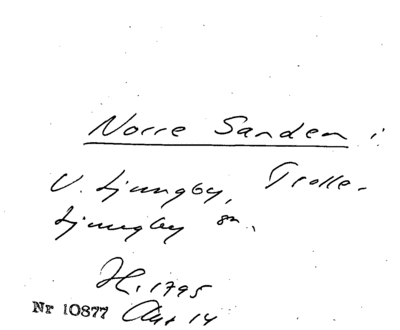 Norre Sanden i
V. Ljungby, Trolle-
Ljungby sn.
H. 1795
Nr 10877 Akt 14